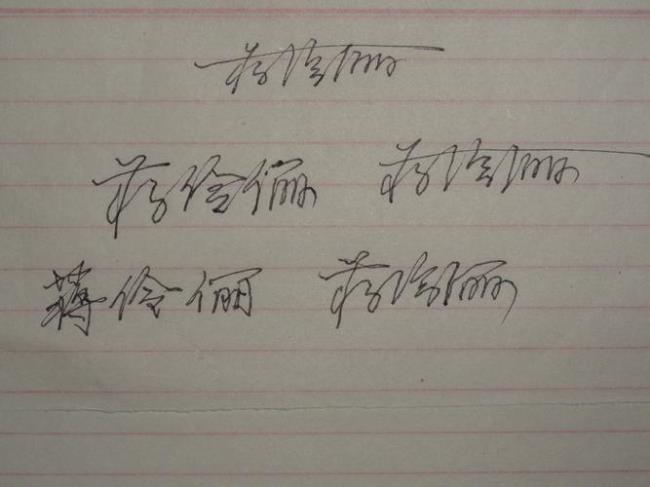 蒋伶俪
蒋伶俪 蒋伶俪
蒋伶俪 蒋伶俪